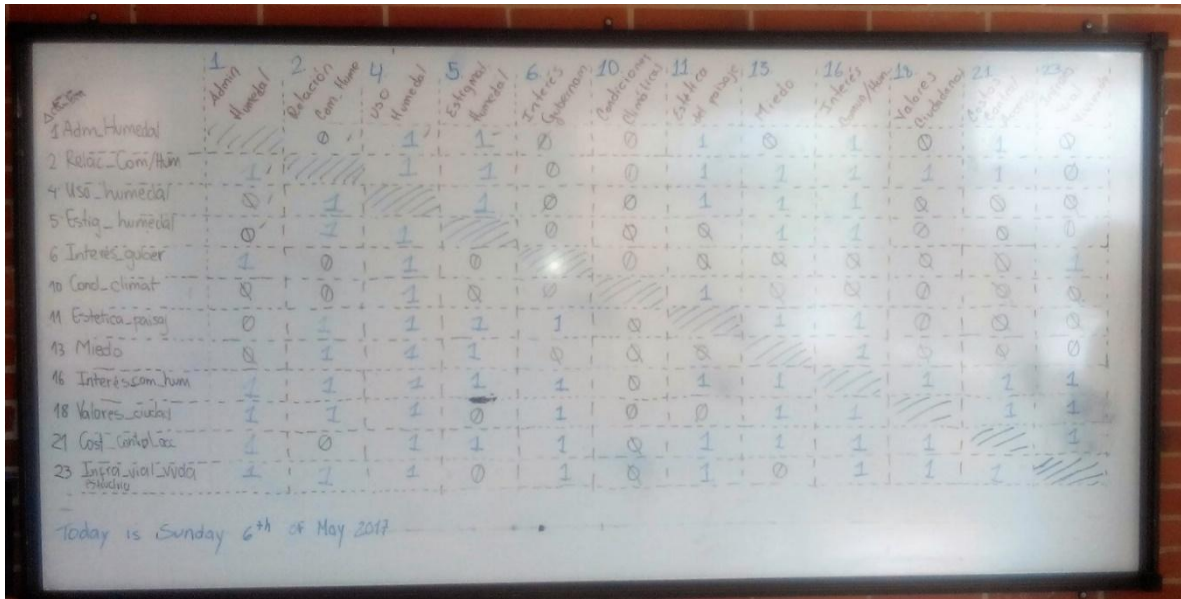 1 2 4 5 6 10 11 13 16 18 21 23
Admin Humedal Relación Com. Hume Uso Humedal Estigma/ Humedal Interés Gubernam Condiciones Climáticas Estética del paisaje Miedo Interés Valores Ciudadanos Costos Control
1 Adm_Humedal 0 1 1 0 0 1 0 1 0 1 0
2 Relac_Com/Hum 1 1 1 0 0 1 1 1 1 1 0
4 Uso_humedal 0 1 1 0 0 1 1 1 0 0 0
5 Estig_humedal 0 1 1 0 0 0 1 1 0 0 0
6 Interés_guber 1 0 1 0 0 0 0 0 0 0 1
10 Cond_climat 0 0 1 0 0 1 0 0 0 0 0
11 Estetica_paisaj 0 1 1 1 1 0 1 1 0 0 0
13 Miedo 0 1 1 1 0 0 0 1 0 0 0
16 Interés_com_hum 1 1 1 1 1 0 1 1 1 1 1
18 Valores_ciudad 1 1 1 0 1 0 0 1 1 1 1
21 Cost_Contol_acc 1 0 1 1 1 0 1 1 1 1 1
23 Infra_vial_vivda 1 1 1 0 1 0 1 0 1 1 1
Today is Sunday 6th of May 2017